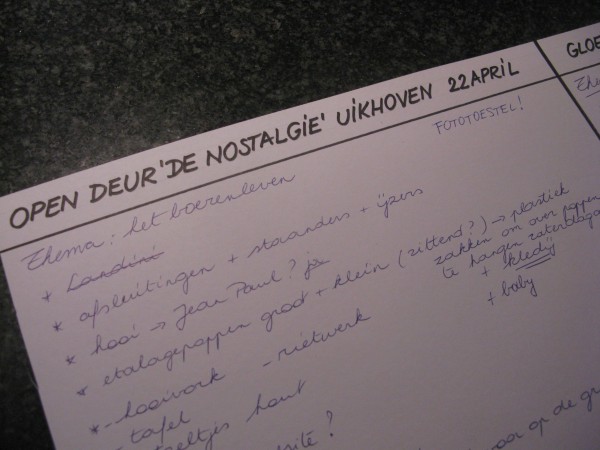 OPEN DEUR 'DE NOSTALGIE' UIKHOVEN 22 APRIL
GLOE
FOTOTOESTEL!
Thema: het boerenleven
* Landini
* afsluitingen + staanders + ijzers
* hooi → Jean Paul? ja
* etalagepoppen groot + klein (zittend?) → plastiek
zakken om over poppen
te hangen zaterdag
+ kledij
+ baby
* - hooivork - rietwerk
- tafel
hout
?
op de gr